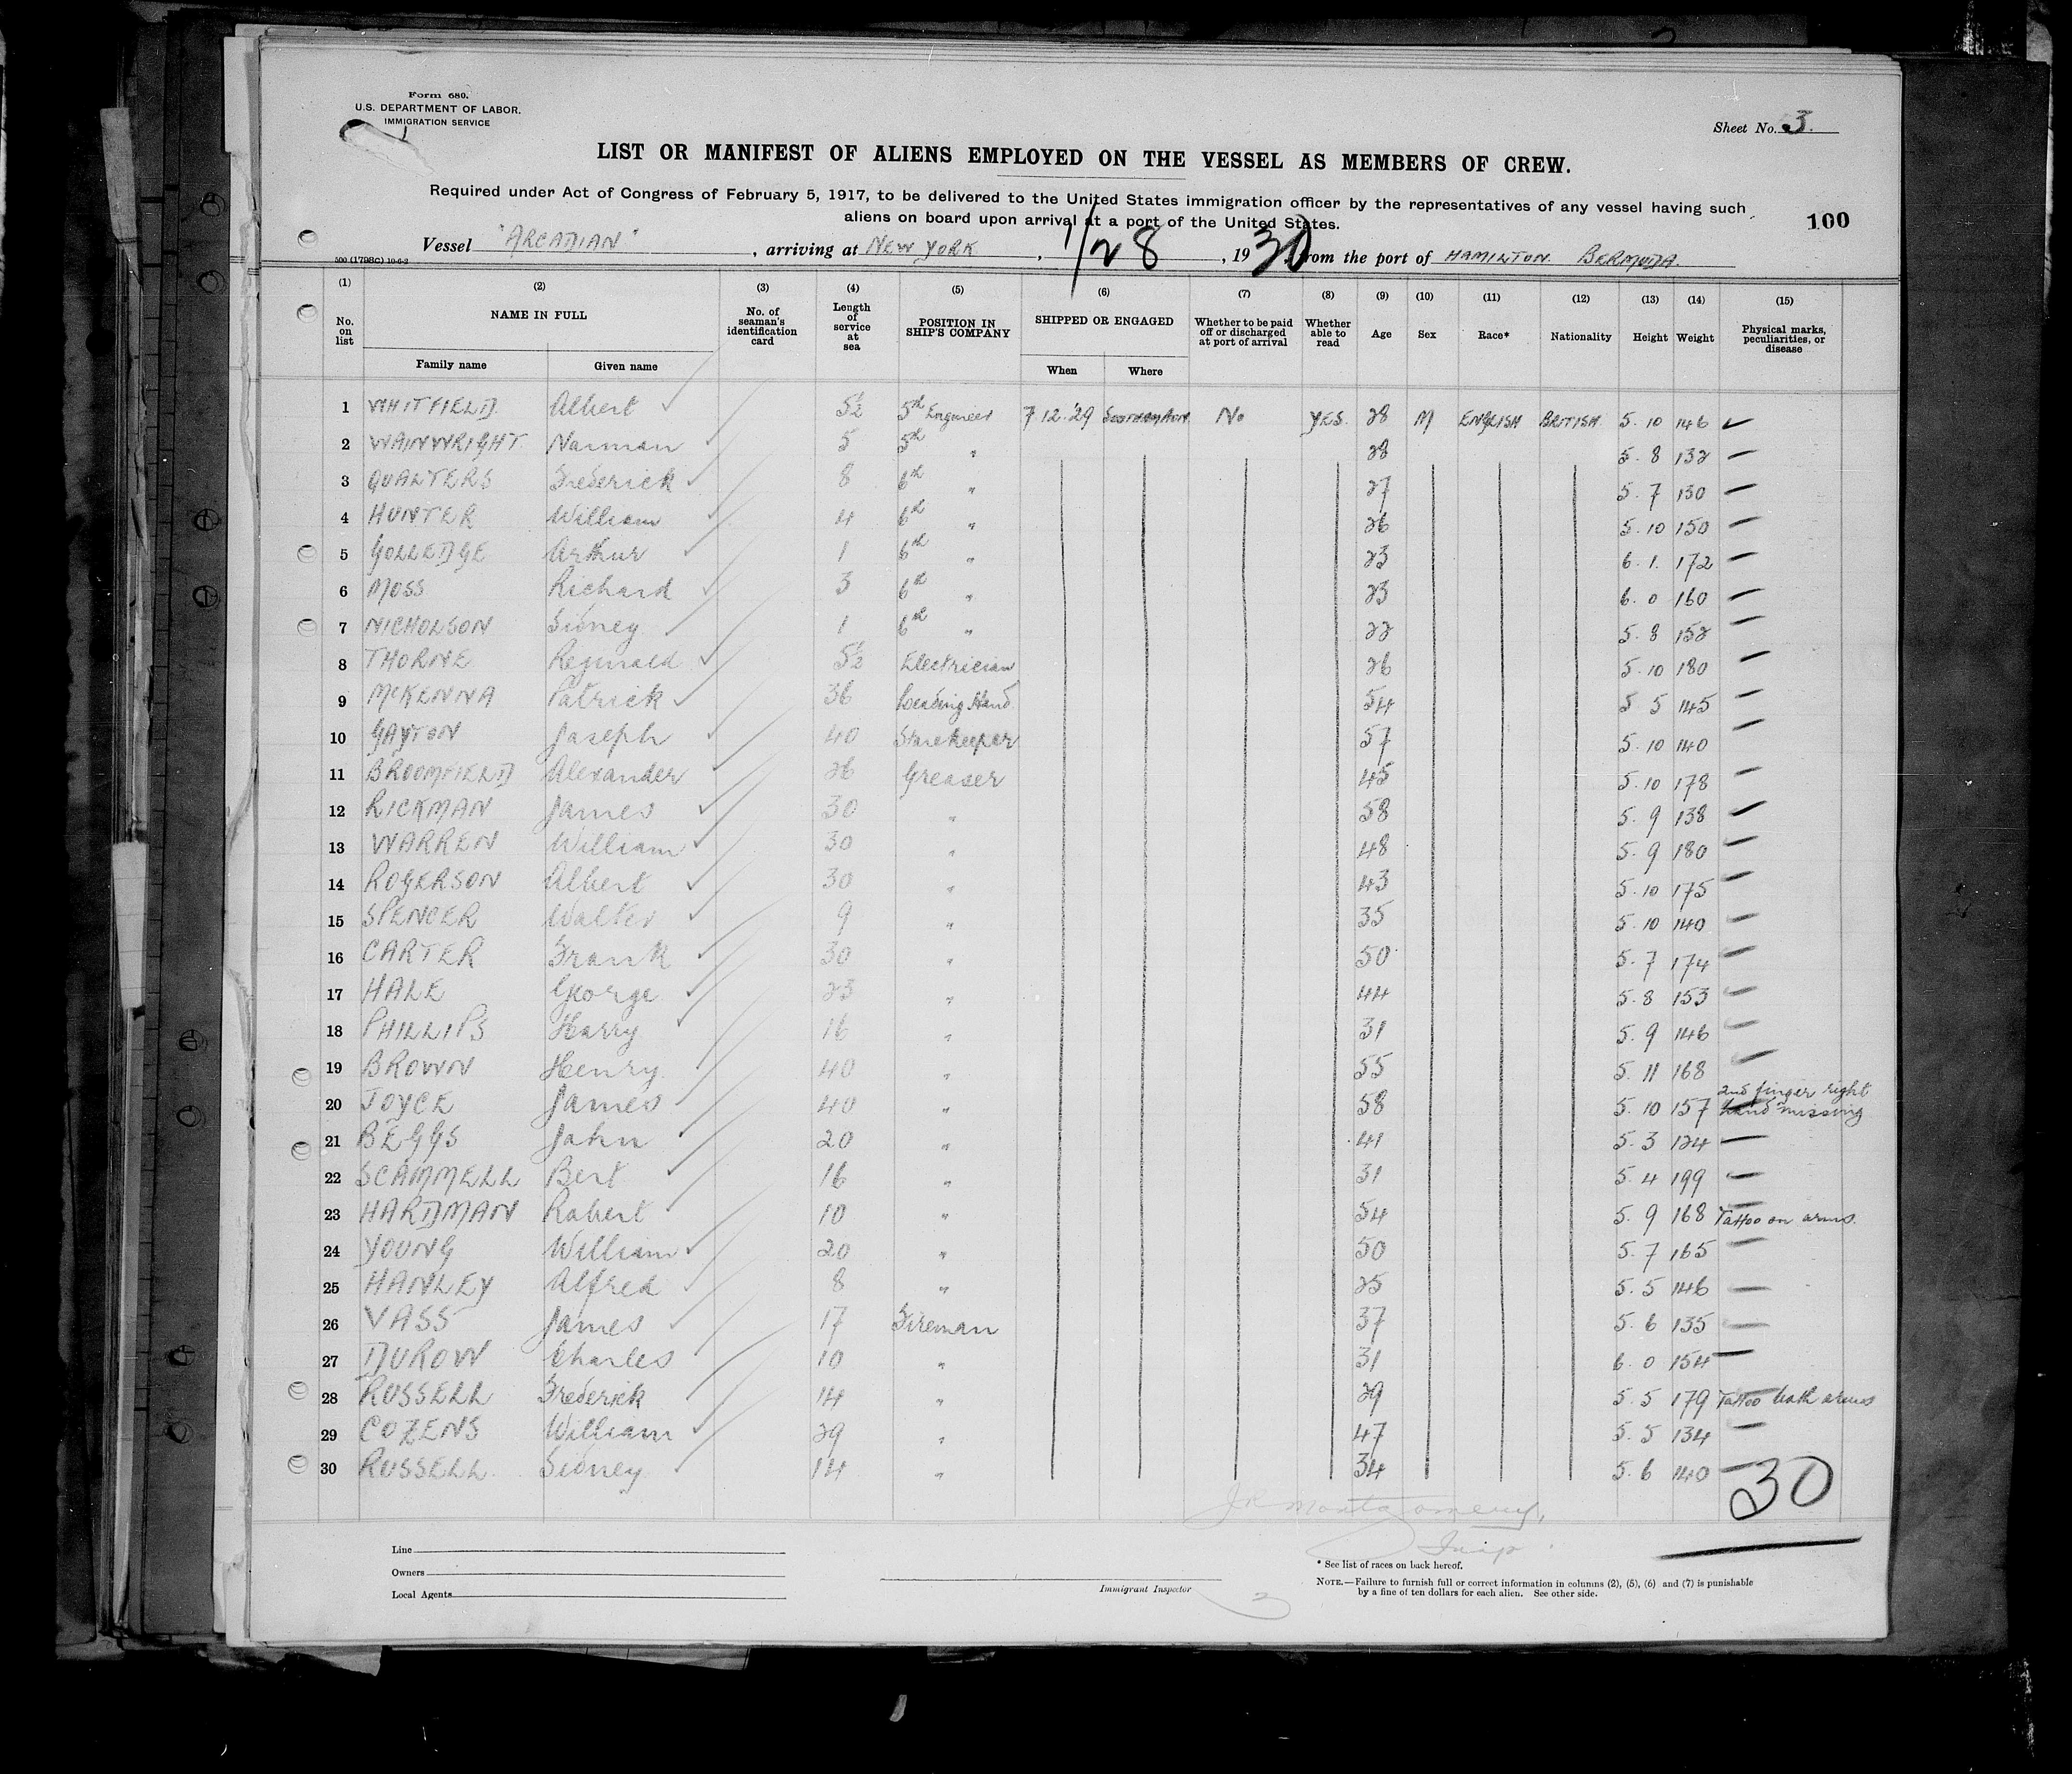 Form 680.
U.S. DEPARTMENT OF LABOR.
IMMIGRATION SERVICE
Sheet No. 3.
LIST OR MANIFEST OF ALIENS EMPLOYED ON THE VESSEL AS MEMBERS OF CREW.
Required under Act of Congress of February 5, 1917, to be delivered to the United States immigration officer by the representatives of any vessel having such
aliens on board upon arrival at a port of the United States.
100
Vessel "ARCADIAN", arriving at NEW YORK, 1/28, 1930, from the port of HAMILTON BERMUDA.
(1) (2) (3) (4) (5) (6) (7) (8) (9) (10) (11) (12) (13) (14) (15)
No. on list NAME IN FULL Family name Given name No. of seaman's identification card Length of service at sea POSITION IN SHIP'S COMPANY SHIPPED OR ENGAGED When Where Whether to be paid off or discharged at port of arrival Whether able to read Age Sex Race* Nationality Height Weight Physical marks, peculiarities, or disease
1 WHITFIELD Albert 5½ 5th Engineer 7.12.'29 Southampton No YES. 28 M ENGLISH BRITISH 5. 10 146
2 WAINWRIGHT Norman 5 5th " 28 5. 8 132
3 QUALTERS Frederick 8 6th " 27 5. 7 130
4 HUNTER William 4 6th " 26 5. 10 150
5 GOLLEDGE Arthur 1 6th " 23 6. 1. 172
6 MOSS Richard 3 6th " 23 6. 0 160
7 NICHOLSON Sidney 1 6th " 22 5. 8 152
8 THORNE Reginald 5½ Electrician 26 5. 10 180
9 McKENNA Patrick 36 Leading Hand 54 5 5 145
10 GAYTON Joseph 40 Storekeeper 57 5. 10 140
11 BROOMFIELD Alexander 26 Greaser 45 5. 10 178
12 RICKMAN James 30 " 58 5. 9 138
13 WARREN William 30 " 48 5. 9 180
14 ROGERSON Albert 30 " 43 5. 10 175
15 SPENCER Walter 9 " 35 5. 10 140
16 CARTER Frank 30 " 50 5. 7 174
17 HALE George 23 " 44 5. 8 153
18 PHILLIPS Harry 16 " 31 5. 9 146
19 BROWN Henry 40 " 55 5. 11 168
20 JOYCE James 40 " 58 5. 10 157 2nd finger right hand missing
21 BEGGS John 20 " 41 5. 3 124
22 SCAMMELL Bert 16 " 31 5. 4 199
23 HARDMAN Robert 10 " 54 5. 9 168 Tattoo on arms.
24 YOUNG William 20 " 50 5. 7 165
25 HANLEY Alfred 8 " 25 5. 5 146
26 VASS James 17 Fireman 37 5. 6 135
27 DUROW Charles 10 " 31 6. 0 154
28 RUSSELL Frederick 14 " 29 5. 5 179 Tattoo both arms
29 COZENS William 29 " 47 5. 5 134
30 RUSSELL Sidney 14 " 34 5. 6 140
30
JR Montgomery,
Insp
Line
Owners
Local Agents
Immigrant Inspector
3
* See list of races on back hereof.
NOTE.—Failure to furnish full or correct information in columns (2), (5), (6) and (7) is punishable
by a fine of ten dollars for each alien. See other side.